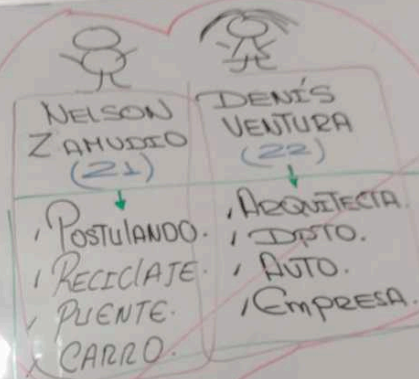 NELSON
ZAMUDIO
(21)
, POSTULANDO.
, RECICLAJE.
, PUENTE.
, CARRO.
DENÍS
VENTURA
(22)
, ARQUITECTA.
, DPTO.
, AUTO.
, EMPRESA